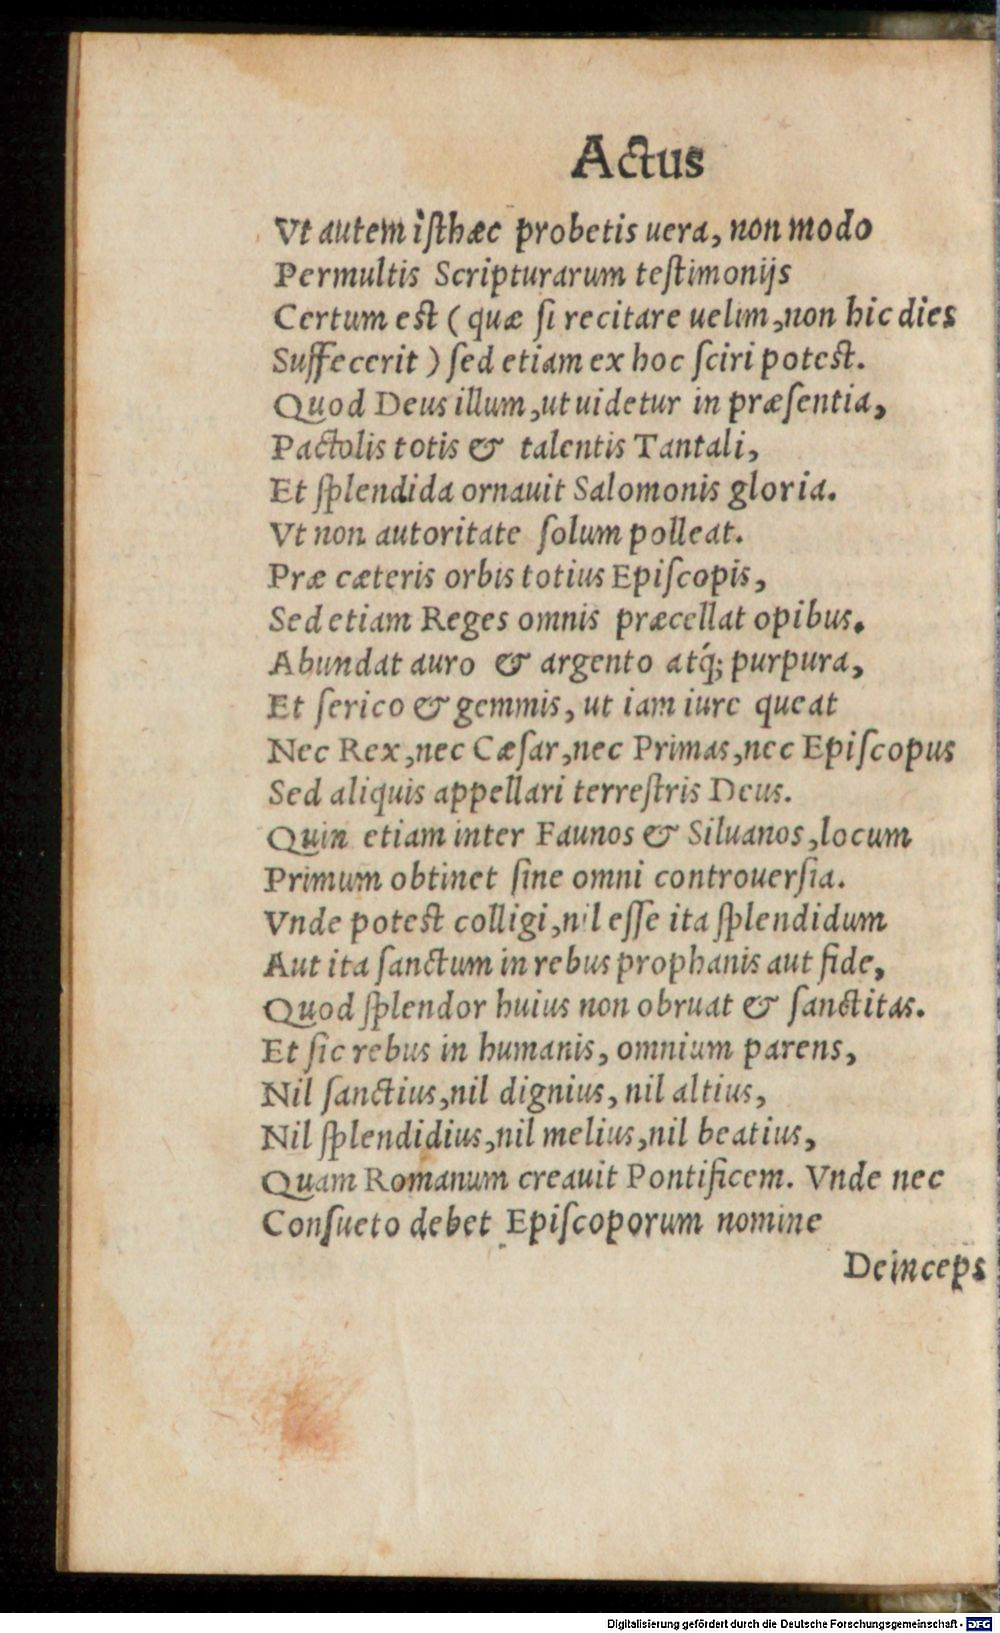 Actus
Vt autem isthæc probetis uera, non modo
Permultis Scripturarum testimonijs
Certum est ( quæ si recitare uelim, non hic dies
Suffecerit ) sed etiam ex hoc sciri potest.
Quod Deus illum, ut uidetur in præsentia,
Pactolis totis & talentis Tantali,
Et splendida ornauit Salomonis gloria.
Vt non autoritate solum polleat.
Præ cæteris orbis totius Episcopis,
Sed etiam Reges omnis præcellat opibus.
Abundat auro & argento atq́; purpura,
Et serico & gemmis, ut iam iure queat
Nec Rex, nec Cæsar, nec Primas, nec Episcopus
Sed aliquis appellari terrestris Deus.
Quin etiam inter Faunos & Siluanos, locum
Primum obtinet sine omni controuersia.
Vnde potest colligi, nil esse ita splendidum
Aut ita sanctum in rebus prophanis aut fide,
Quod splendor huius non obruat & sanctitas.
Et sic rebus in humanis, omnium parens,
Nil sanctius, nil dignius, nil altius,
Nil splendidius, nil melius, nil beatius,
Quam Romanum creauit Pontificem. Vnde nec
Consueto debet Episcoporum nomine
Deinceps
Digitalisierung gefördert durch die Deutsche Forschungsgemeinschaft - DFG